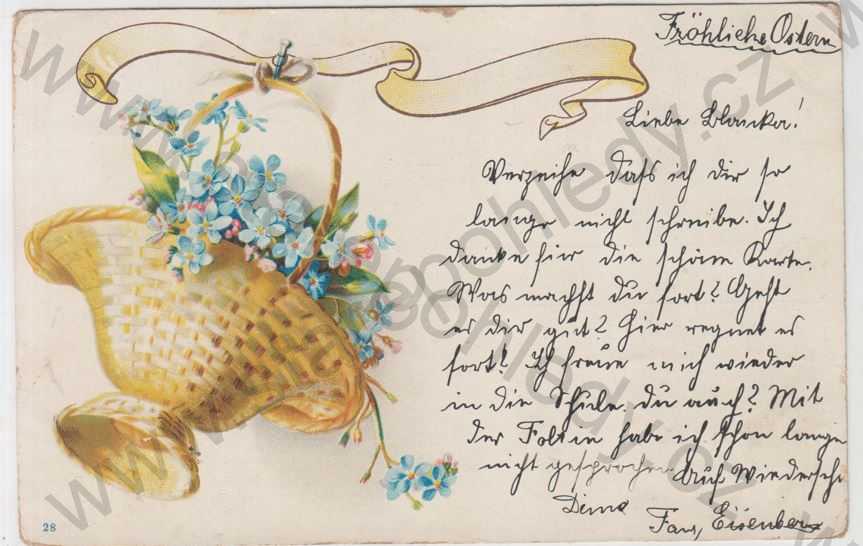 Fröhliche Ostern
Liebe Blanka!
Verzeihe dafs ich dir so
lange nicht schreibe. Ich
danke für die schöne Karte.
Was machst du fort? Geht
es dir gut? Hier regnet es
fort! Ich freue mich wieder
in die Schule. du auch? Mit
der habe ich schon lange
nicht gesprochen Auf Wiederseh
Deine
Eisenberg
28